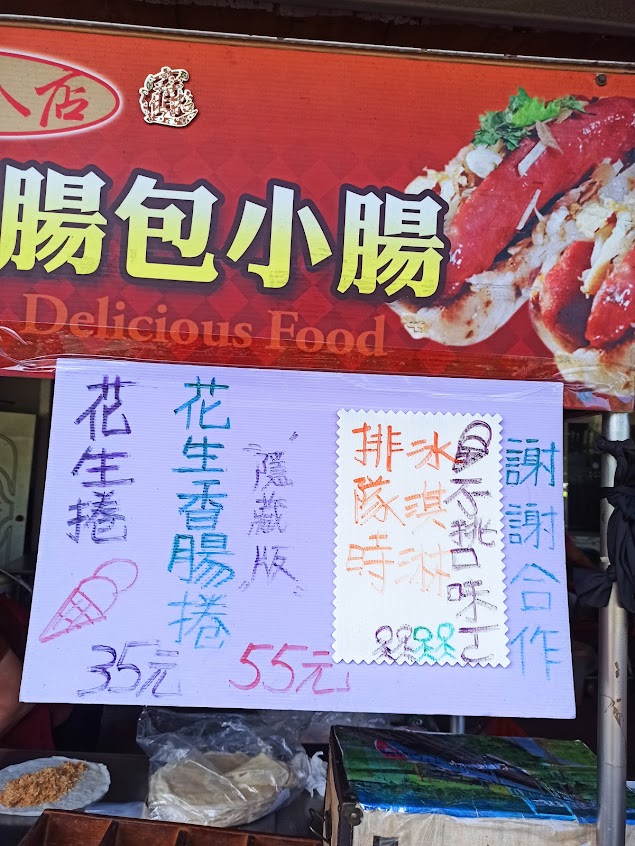 店
腸包小腸
Delicious Food
花生捲
35元
花生香腸捲
"隱藏版"
55元
排隊時
冰淇淋
不挑口味
謝謝合作